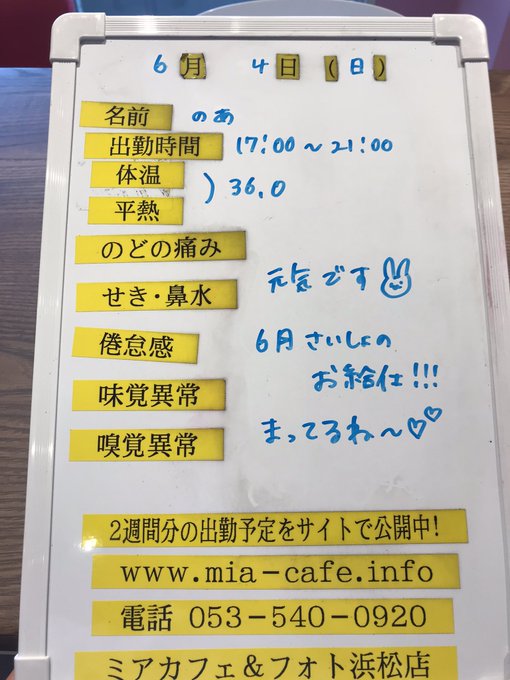 6月 4日(日)
名前 のあ
出勤時間 17:00~21:00
体温
平熱 ) 36.0
のどの痛み
せき・鼻水 元気です
倦怠感 6月さいしょの
味覚異常 お給仕!!!
嗅覚異常 まってるね~♡♡
2週間分の出勤予定をサイトで公開中!
www.mia-cafe.info
電話 053-540-0920
ミアカフェ&フォト浜松店